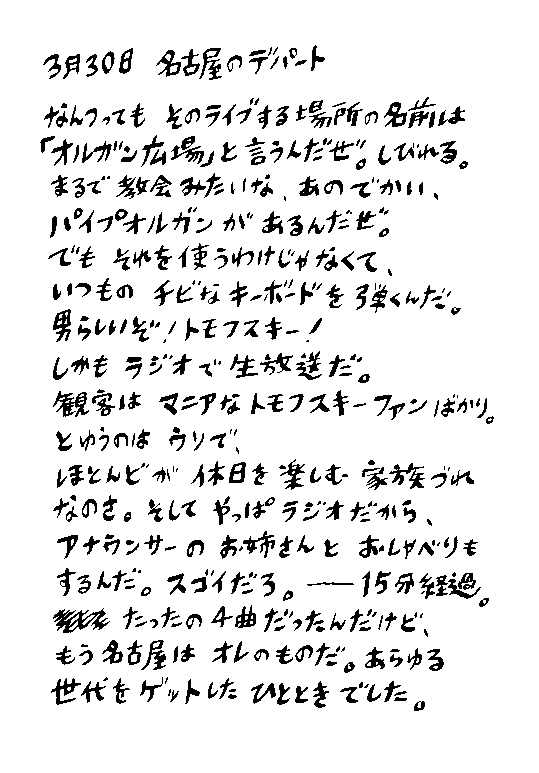 3月30日 名古屋のデパート
なんつっても そのライブする場所の名前は
「オルガン広場」と言うんだぜ。しびれる。
まるで教会みたいな、あのでかい、
パイプオルガンがあるんだぜ。
でも それを使うわけじゃなくて、
いつもの チビなキーボードを弾くんだ。
男らしいぞ!トモフスキー!
しかもラジオで生放送だ。
観客は マニアなトモフスキーファンばかり。
とゆうのは ウソで、
ほとんどが 休日を楽しむ 家族づれ
なのさ。そして やっぱラジオだから、
アナウンサーの お姉さんと おしゃべりも
するんだ。スゴイだろ。――15分経過。
たったの4曲だったんだけど、
もう名古屋は オレのものだ。あらゆる
世代をゲットした ひとときでした。